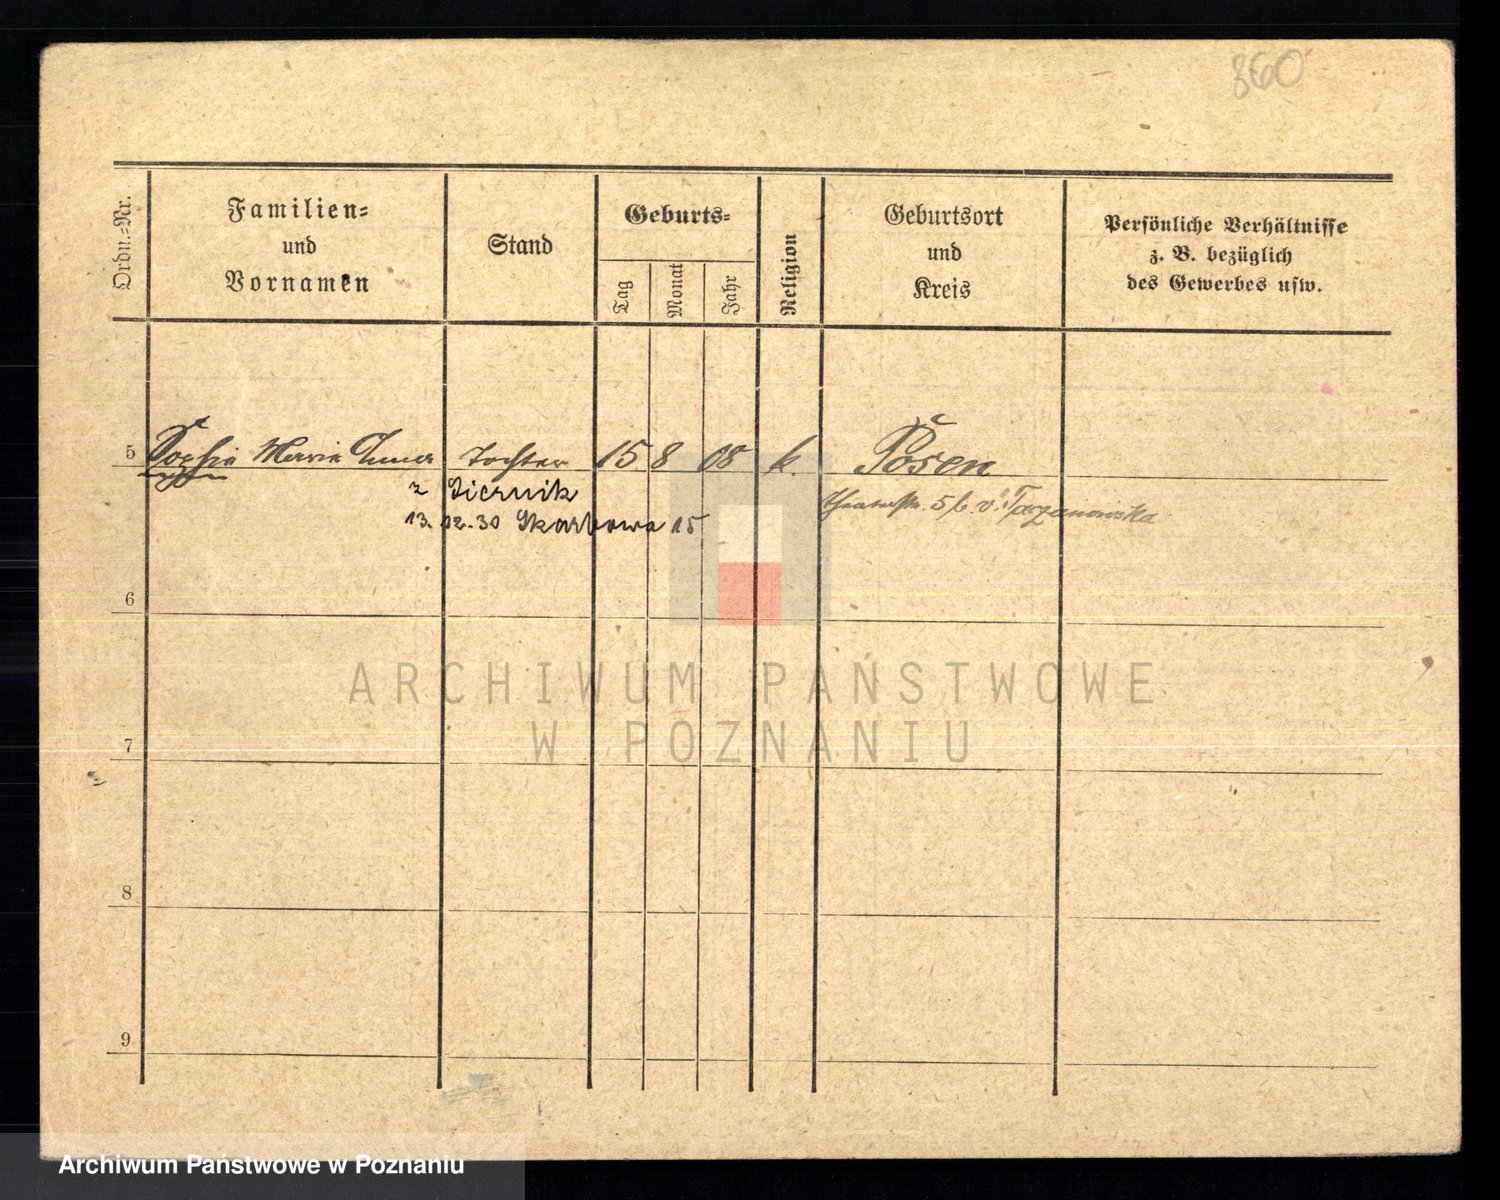 860
Ordn.-Nr.
Familien-
und
Vornamen
Stand
Geburts-
Tag
Monat
Jahr
Religion
Geburtsort
und
Kreis
Persönliche Verhältnisse
z. B. bezüglich
des Gewerbes usw.
5 Sophie Marie Anna Tochter 15 8 08 k. Posen
z Siernik
13. 02. 30 Skarbowa 15
Theaterstr. 5 b. v. Taczanowska
6
7
8
9
ARCHIWUM PAŃSTWOWE
W POZNANIU
Archiwum Państwowe w Poznaniu